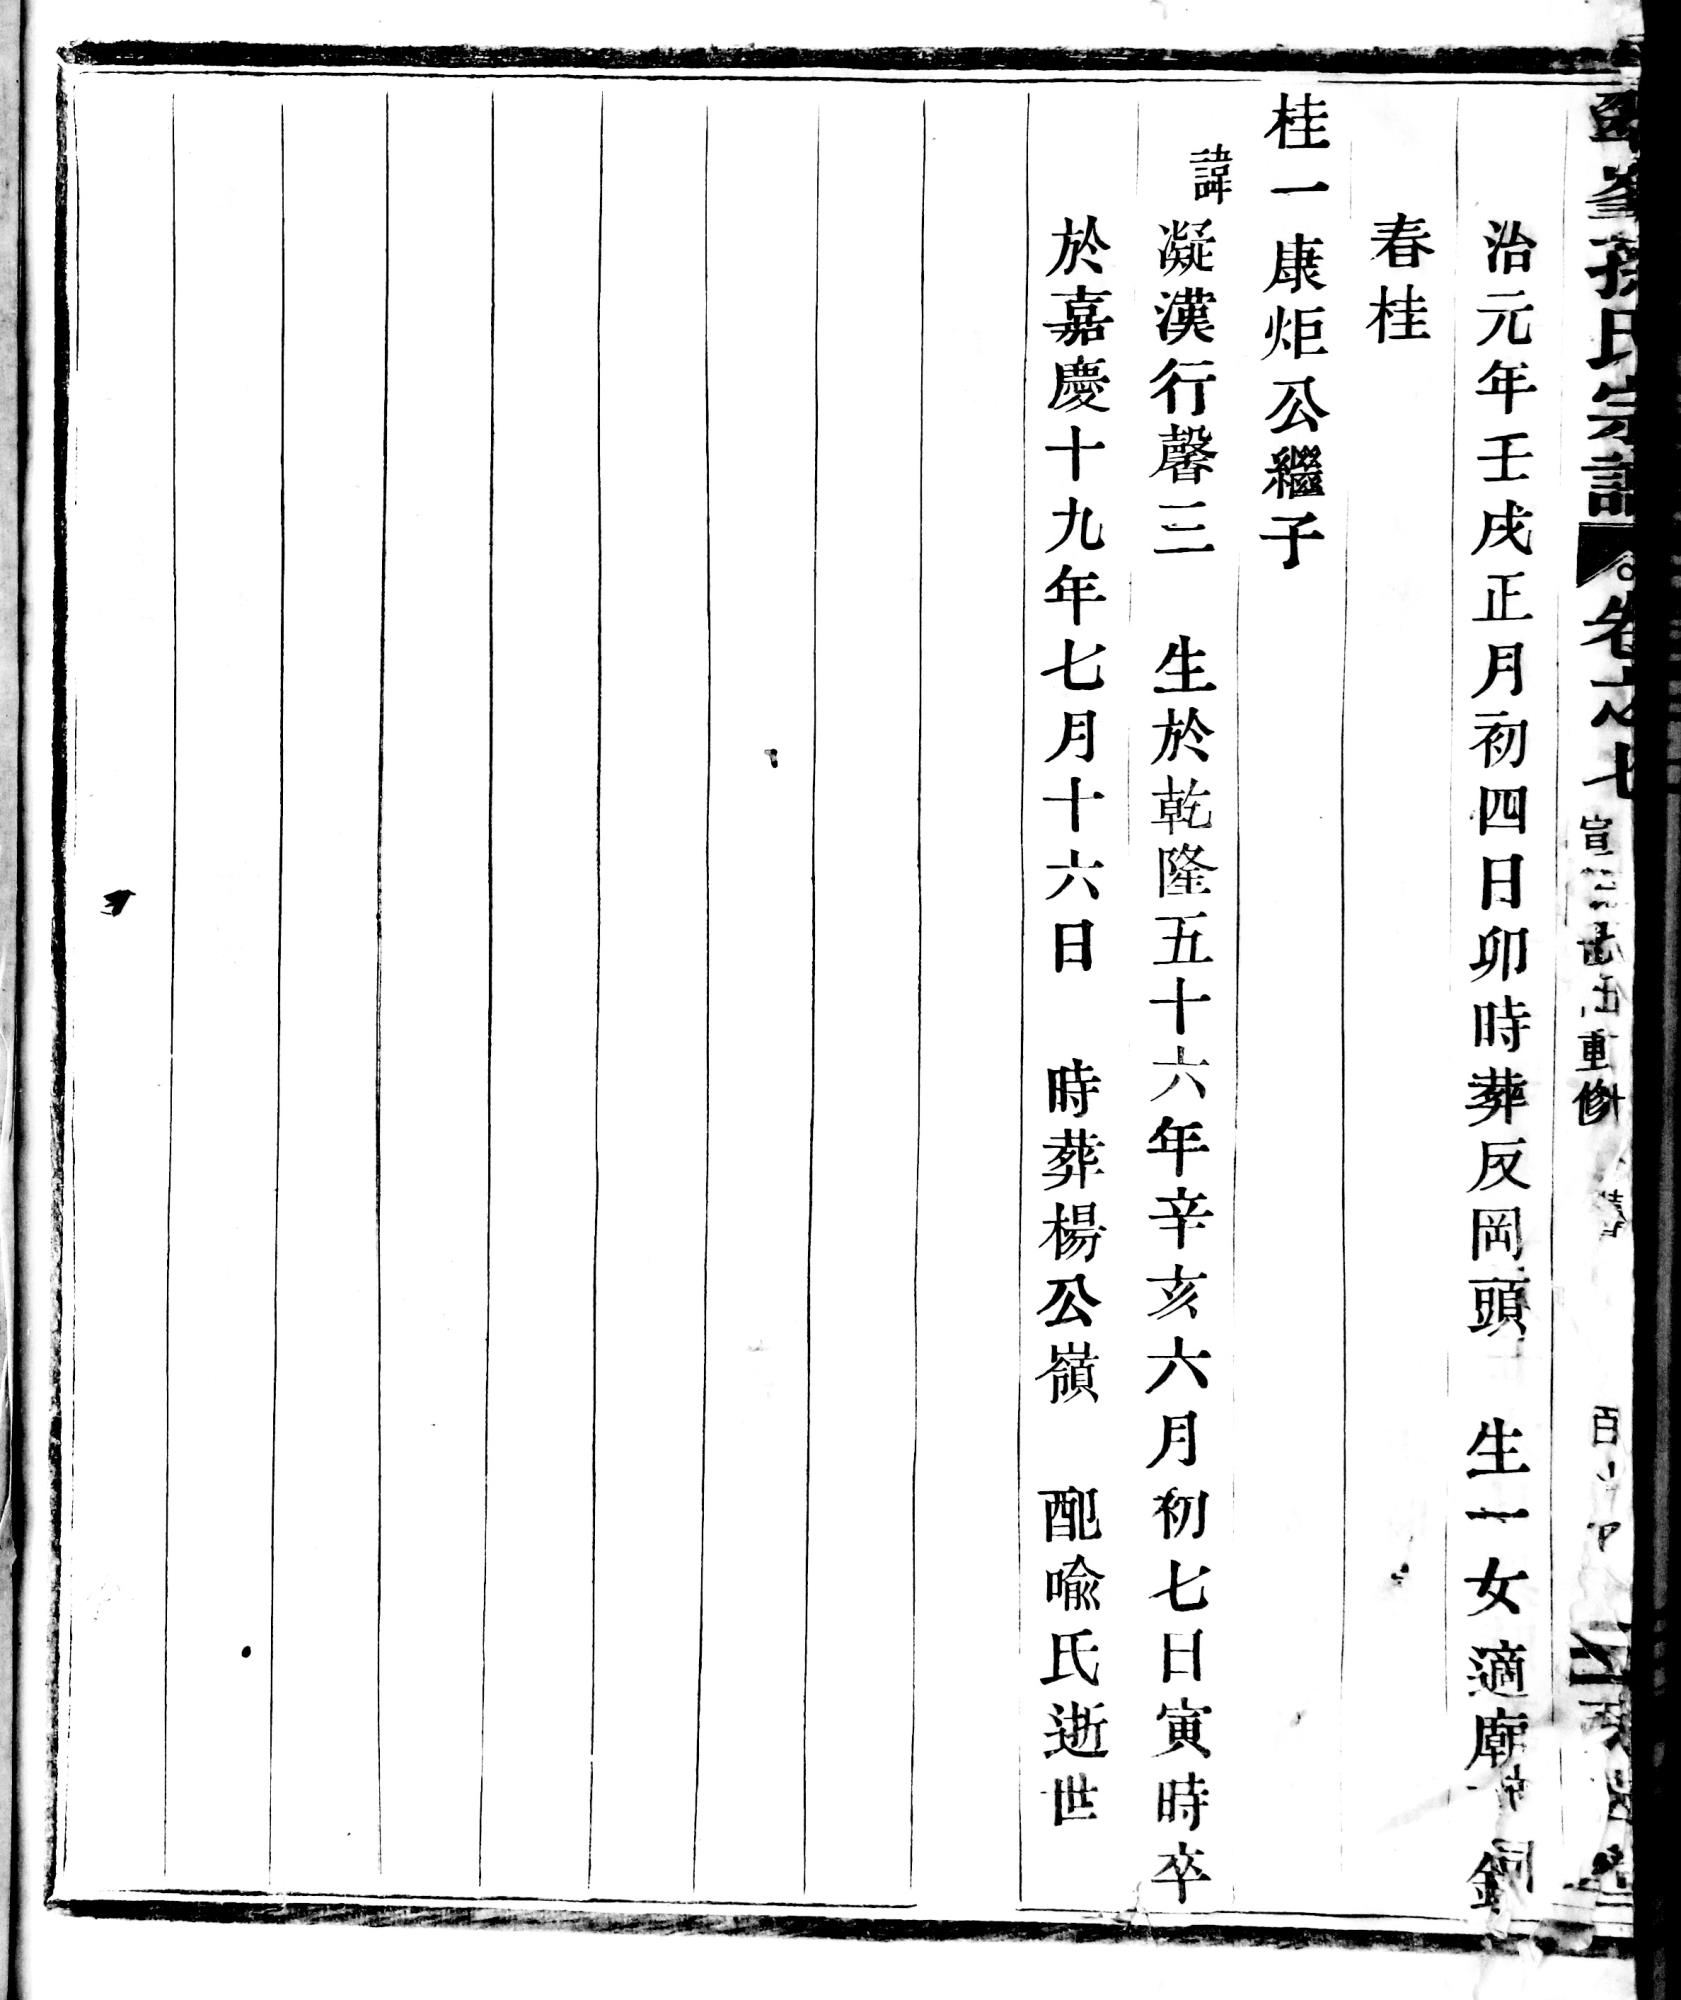 孫氏宗譜 卷之七 重修
治元年壬戌正月初四日卯時葬反岡頭 生一女適廟
春桂
桂一康炬公繼子
諱凝漢行馨三 生於乾隆五十六年辛亥六月初七日寅時卒
於嘉慶十九年七月十六日 時葬楊公嶺 配喻氏逝世